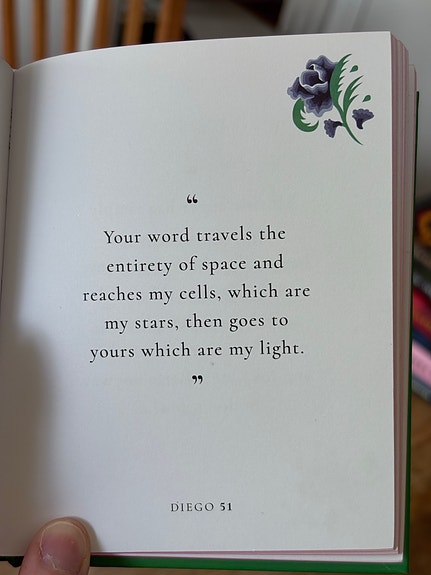 “
Your word travels the
entirety of space and
reaches my cells, which are
my stars, then goes to
yours which are my light.
”
DIEGO 51